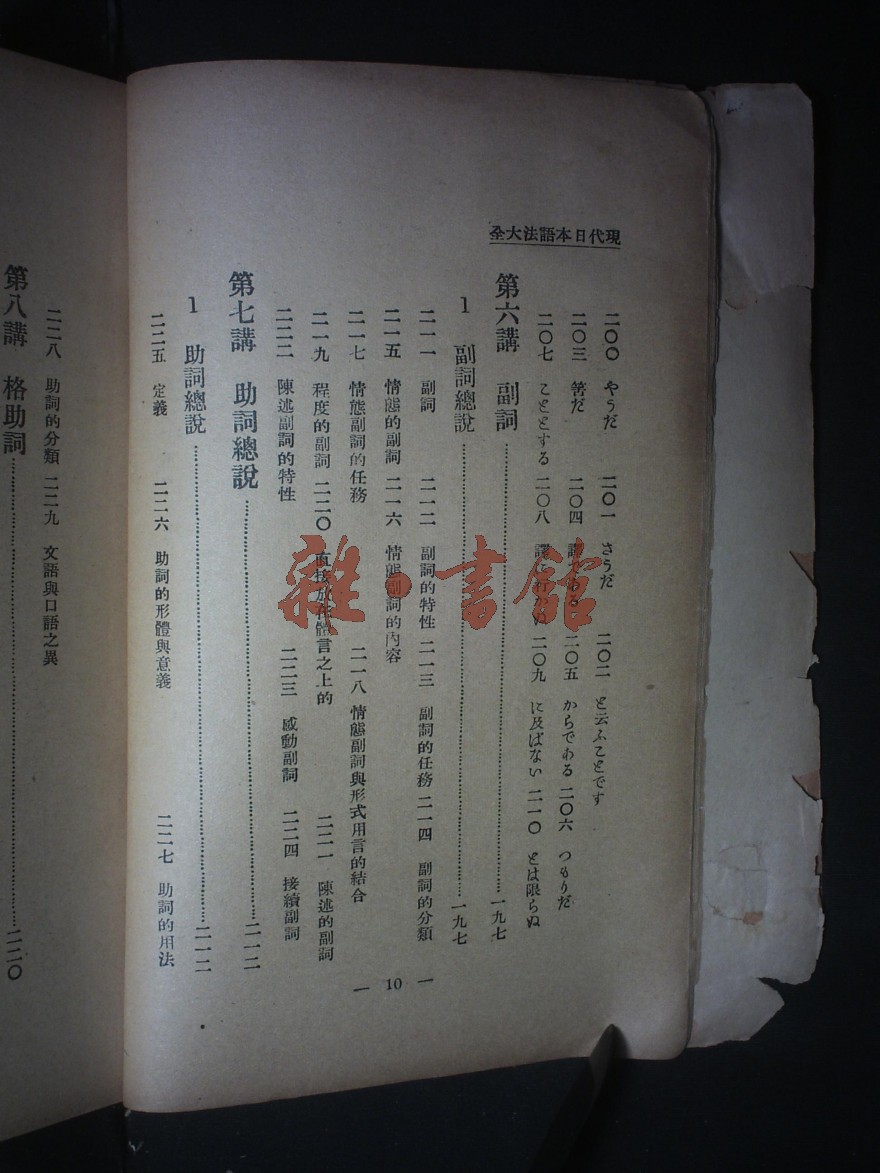 現代日本語法大全
二〇〇 やうだ 二〇一 さうだ 二〇二 と云ふことです
二〇三 筈だ 二〇四 である 二〇五 からである 二〇六 つもりだ
二〇七 こととする 二〇八 二〇九 に及ばない 二一〇 とは限らぬ
第六講 副詞……一九七
1 副詞總說……一九七
二一一 副詞 二一二 副詞的特性 二一三 副詞的任務 二一四 副詞的分類
二一五 情態的副詞 二一六 情態副詞的內容
二一七 情態副詞的任務 二一八 情態副詞與形式用言的結合
二一九 程度的副詞 二二〇 直接放在體言之上的 二二一 陳述的副詞
二二二 陳述副詞的特性 二二三 感動副詞 二二四 接續副詞
第七講 助詞總說……二一二
1 助詞總說……二一二
二二五 定義 二二六 助詞的形體與意義 二二七 助詞的用法
— 10 —
二二八 助詞的分類 二二九 文語與口語之異
第八講 格助詞……二二〇
雜·書館